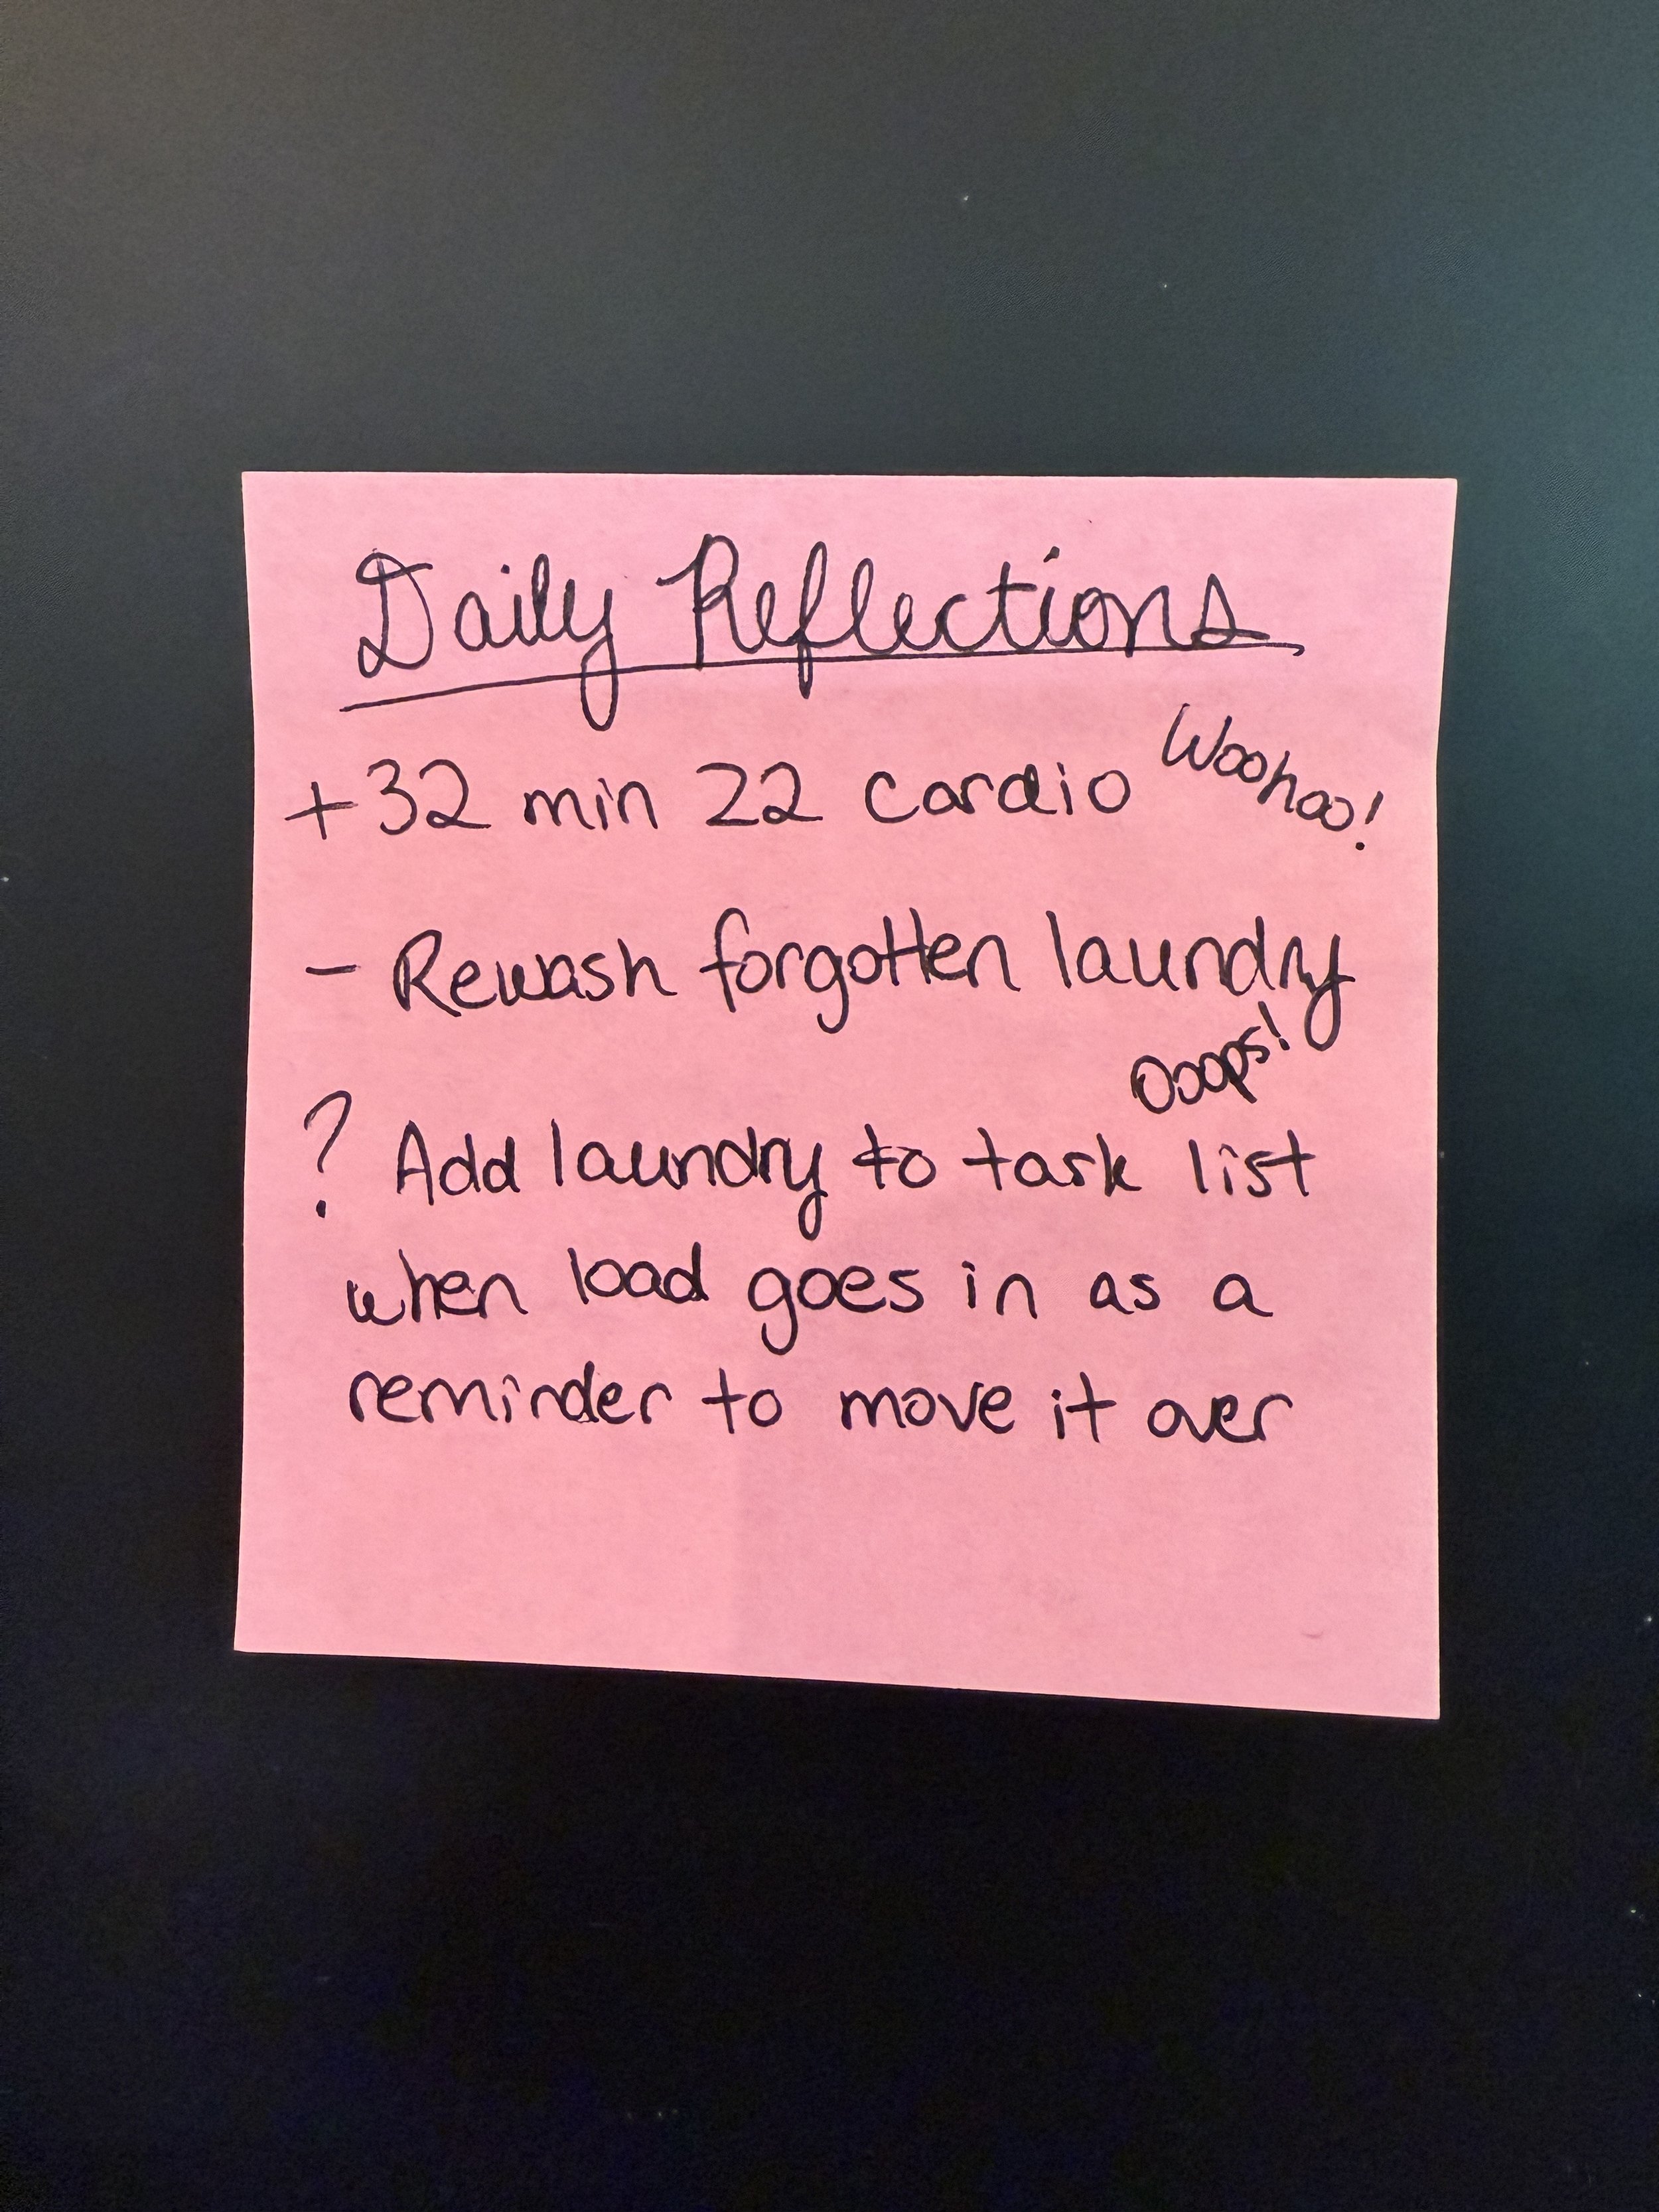 Daily Reflections
+32 min Z2 cardio Woohoo!
- Rewash forgotten laundry
Ooops!
? Add laundry to task list
when load goes in as a
reminder to move it over